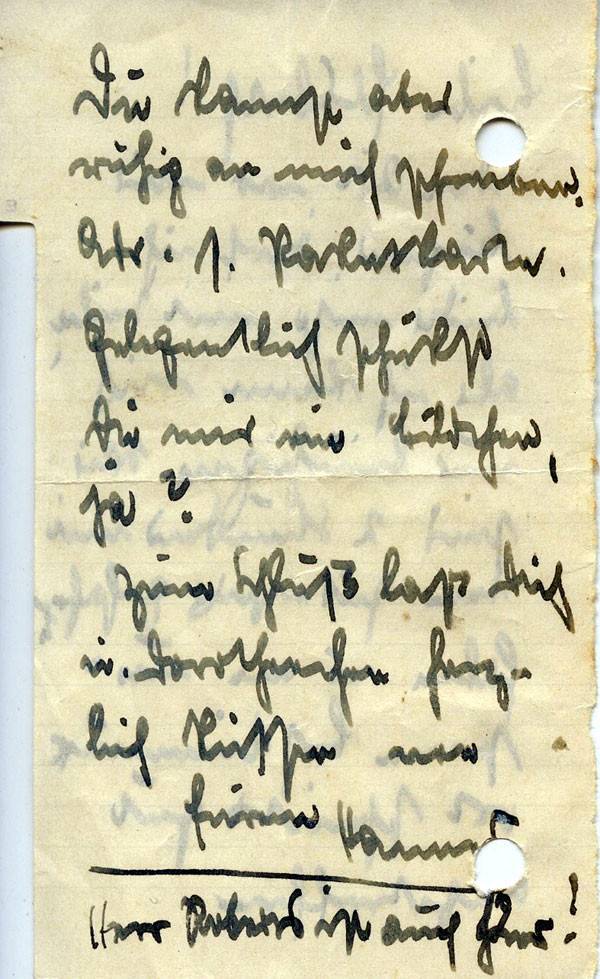 Du kannst aber
ruhig an mich schreiben,
Adr. s. Paketkarte.
Gelegentlich schickst
Du mir ein Bildchen,
ja?
Zum Schluß laß Dich
u. Dorotheechen herz-
lich küssen von
Eurem Hannes
Herr Robers ist auch hier!